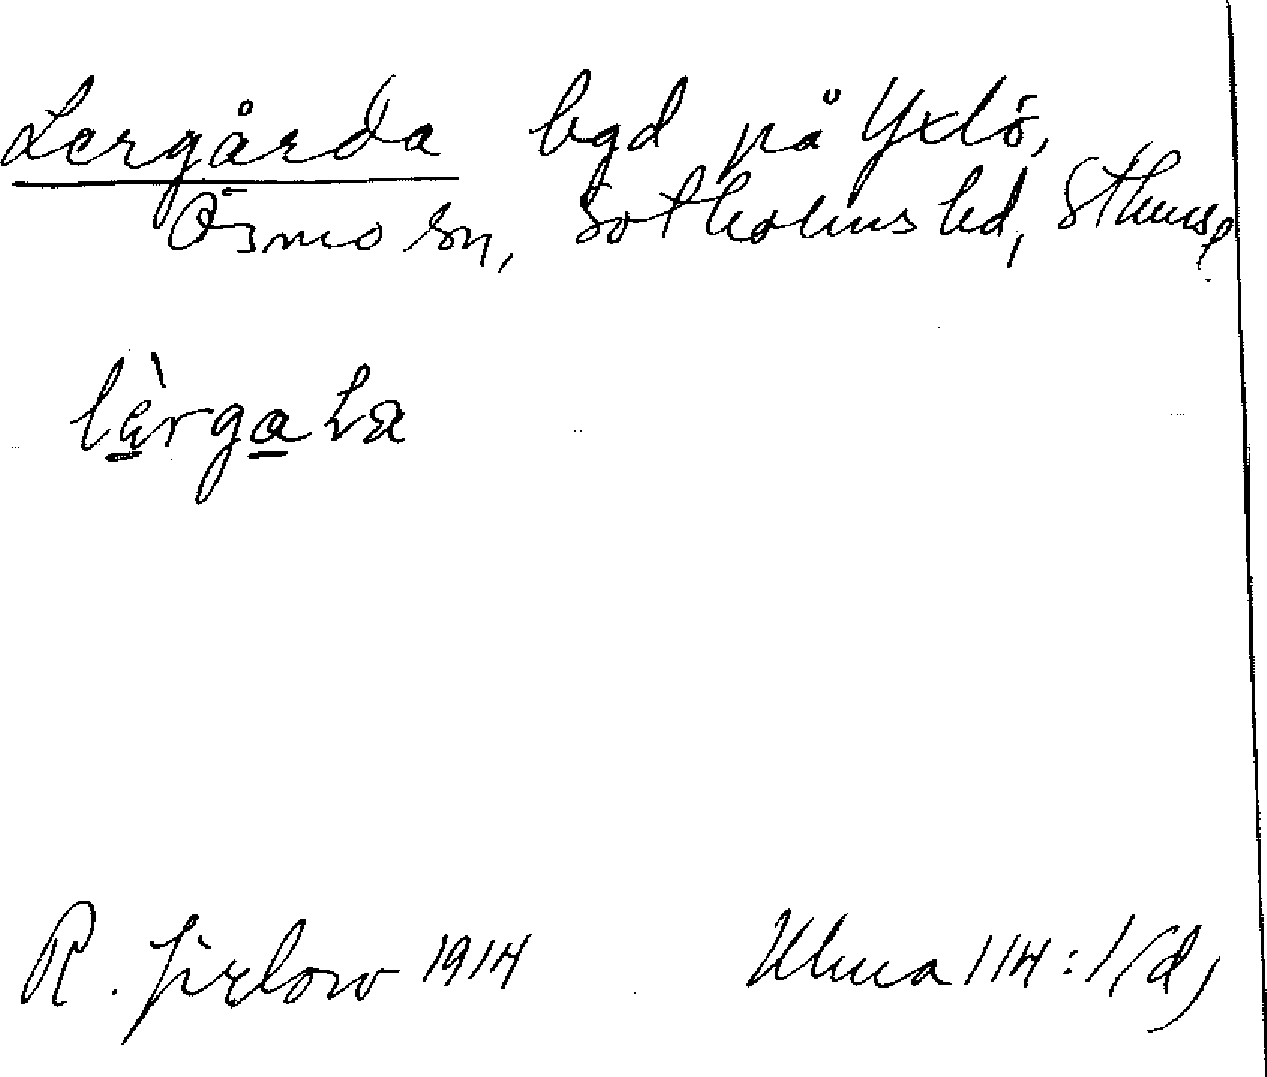 Lergårda bgd på Yxlö,
Ösmo sn, Sotholms hd, Sthms l
lèrgaLa
R. Jirlow 1914 Ulma 114:1(d)